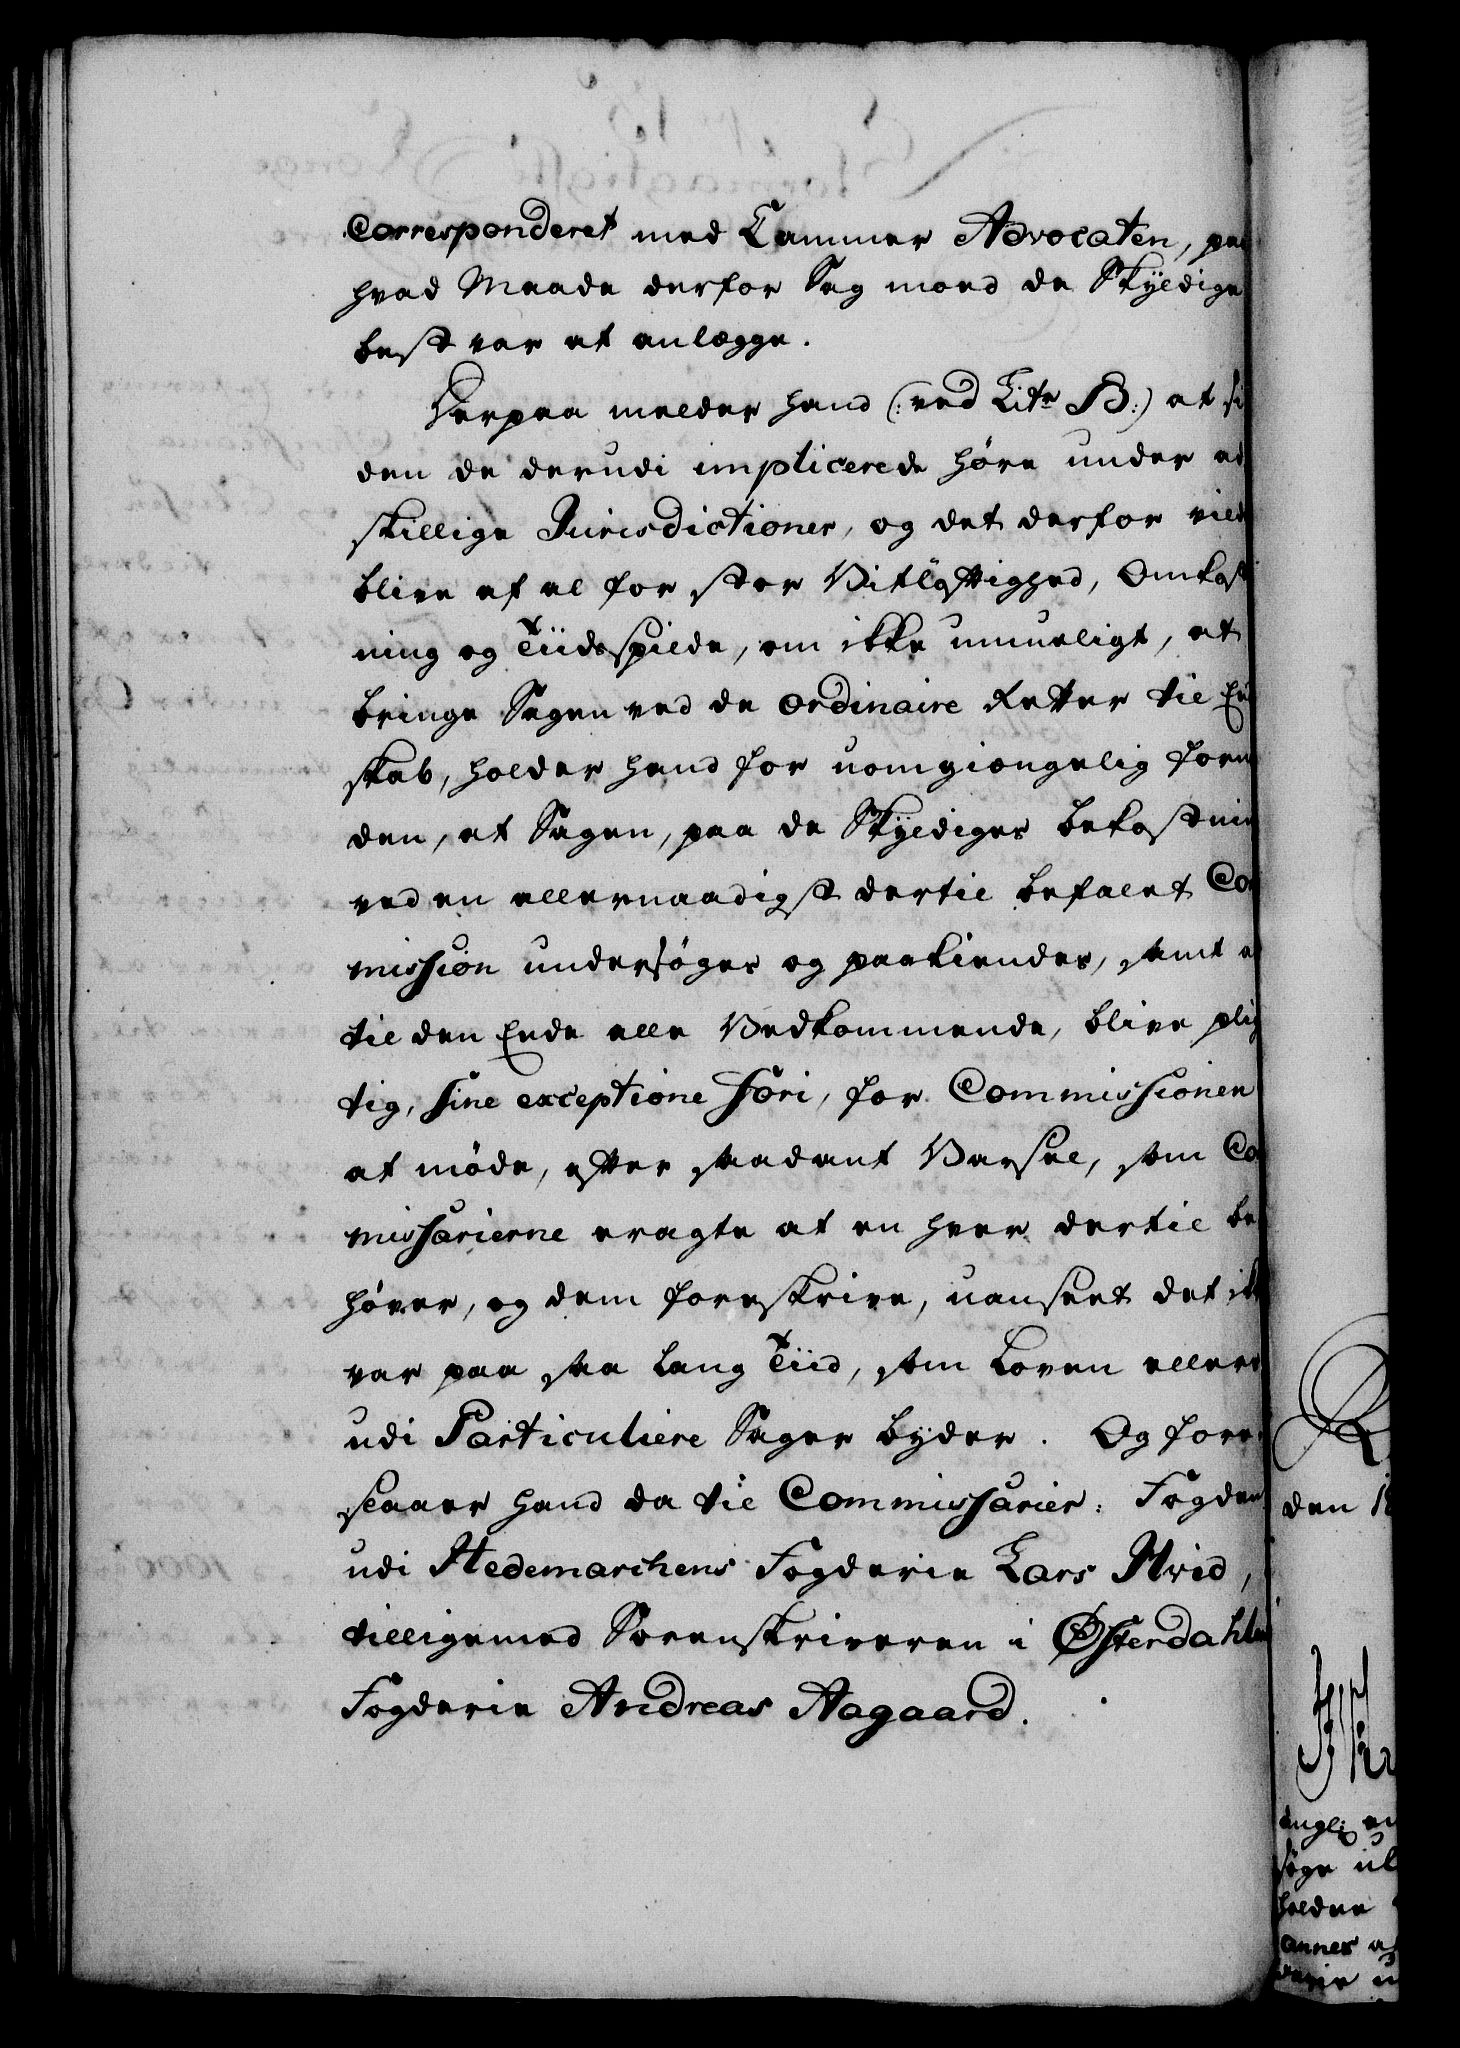 Corresponderet med Cammer Advocaten, paa
hvad Maade derfor Sag moed de Skyldige
best var at anlægge.
Herpaa melder hand (: ved Litr B:) at si
den de derudi implicerede høre under ad
skillige Jurisdictioner, og det derfor vilde
blive af al for stor Vitløftighed, Omkost
ning og Tiidsspilde, om ikke umueligt, at
bringe Sagen ved de ordinaire Retter til End
skab, holder hand for uomgiængelig forn
den, at Sagen, paa de Skyldiges bekostning
ved en allernaadigst dertil befalet Com
mission undersøges og paakiendes, samt at
til den Ende alle Vedkommende, blive plig
tig, sine exceptione fori, for Commissionen
at møde, efter saadant Varsel, som Com
missarierne eragte at en hver dertil be
høver, og dem foreskrive, uanseet det ikke
var paa saa lang Tiid, som Loven ellers
udi Particuliere Sager byder. Og fore
slaaer hand da til Commissarier: Fogden
udi Hedemarchens Fogderie Lars Hvid,
tilligemed Sorenskriveren i Østerdahlen
Fogderie Andreas Aagaard.
den 18